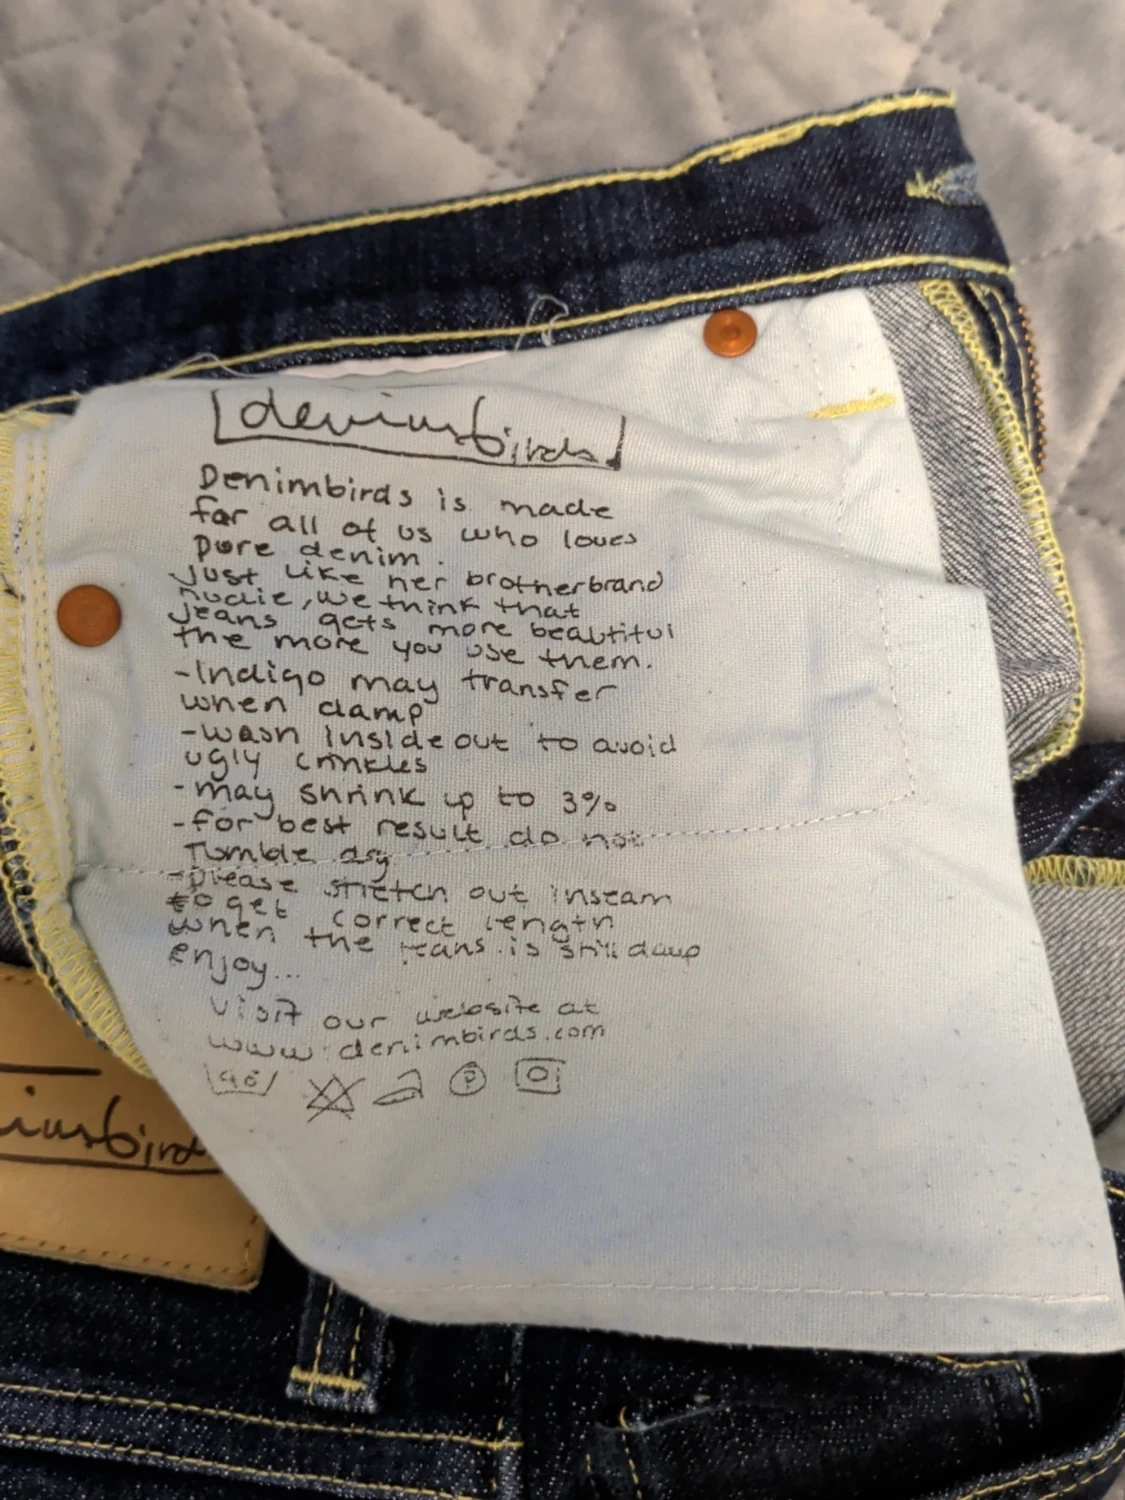 denimbirds
Denimbirds is made
for all of us who loves
pure denim.
Just like her brotherbrand
nudie, we think that
jeans gets more beautiful
the more you use them.
-Indigo may transfer
when damp
-wash inside out to avoid
ugly crinkles
-may shrink up to 3%
-for best result do not
Tumble dry
-please stretch out inseam
to get correct length
when the jeans is still damp
enjoy...
Visit our website at
www.denimbirds.com
40 P
imbirds